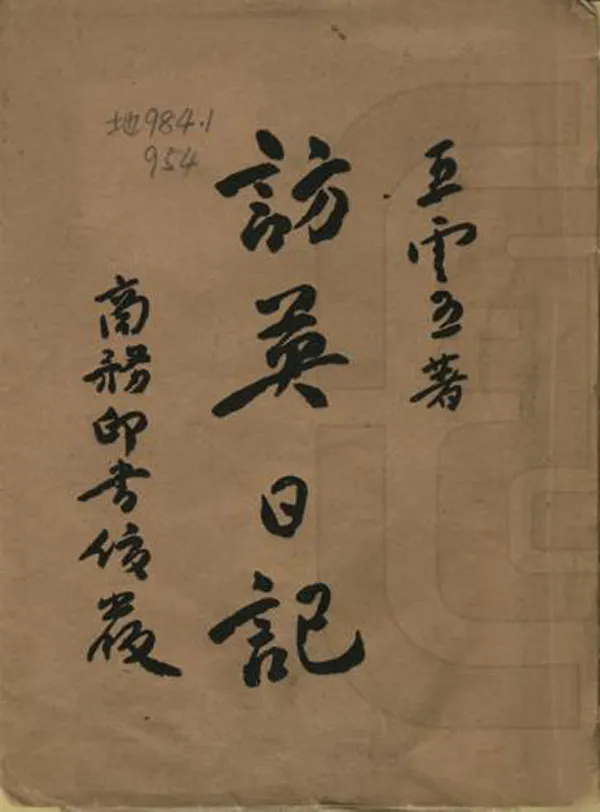 王雲五著
訪英日記
商務印書館發
地984.1
954